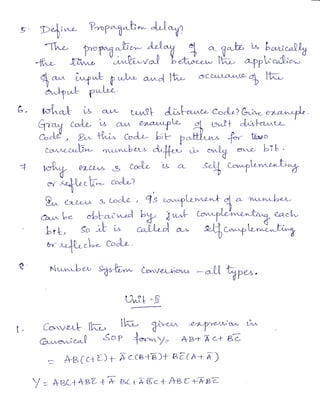 5. Define Propagation delay?
The propagation delay of a gate is basically
the time interval between the application
of an input pulse and the occurance of the
output pulse.
6. What is an unit distance Code? Give example.
Gray code is an example of unit distance
Code, In this Code bit patterns for two
consecutive numbers differ in only one bit.
7 Why excess 3 Code is a Self Complementing
or reflecting code?
In excess 3 code, 9s complement of a number
can be obtained by just complementing each
bit, So it is called as self complementing
or reflecting Code.
8 Number System Conversions – all types.
Unit-II
1. Convert the the given expression in
Canonical SOP form Y= AB+A̅C+BC̅
= AB(C+C̅)+A̅C(B+B̅)+BC̅(A+A̅)
Y = ABC+ABC̅+A̅BC+A̅B̅C+ABC̅+A̅BC̅